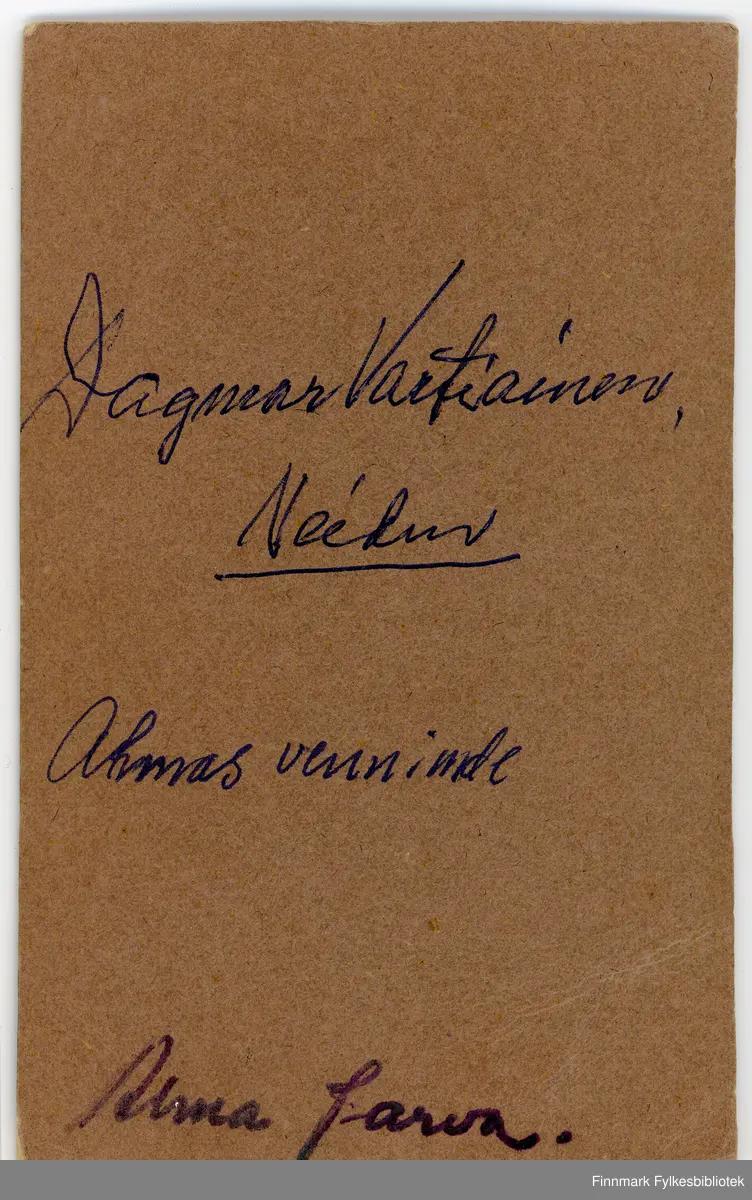 Dagmar Vartiainen,
Neiden
Almas venninde
Alma Jarva.
Finnmark Fylkesbibliotek